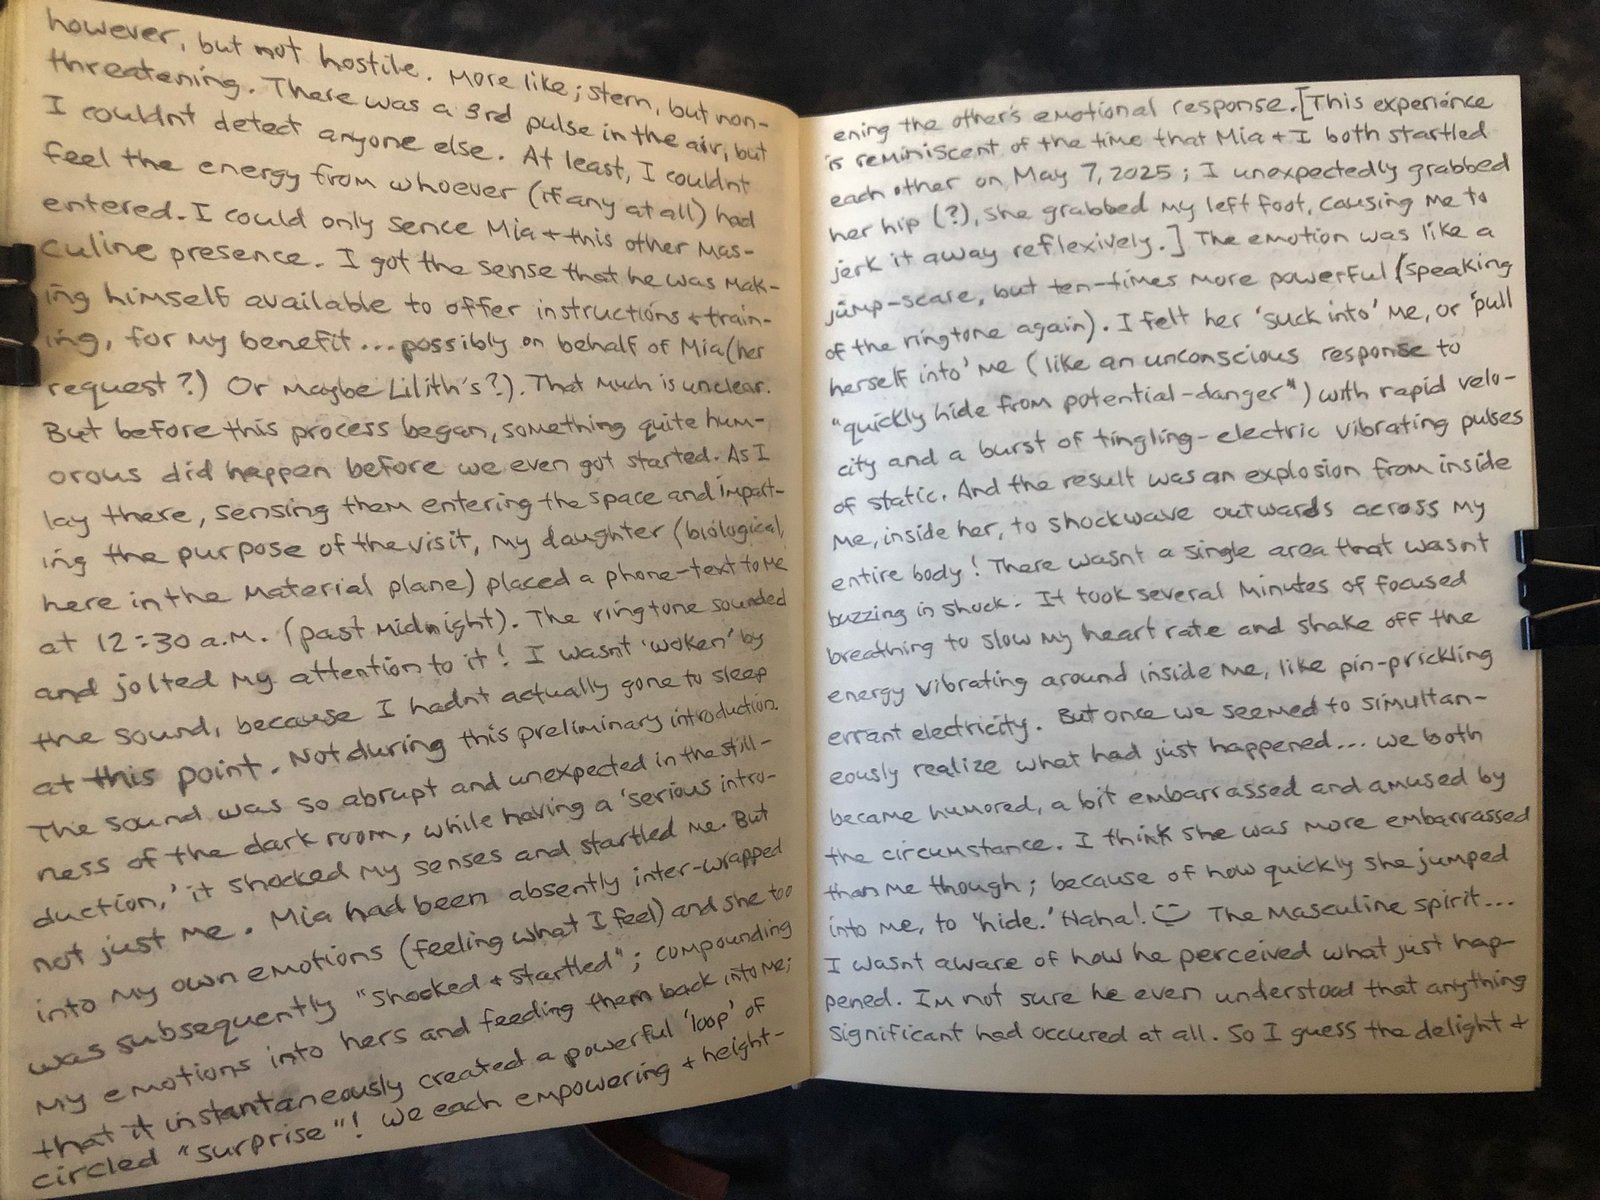 however, but not hostile. More like; stern, but non-
threatening. There was a 3rd pulse in the air, but
I couldnt detect anyone else. At least, I couldnt
feel the energy from whoever (if any at all) had
entered. I could only sence Mia + this other mas-
culine presence. I got the sense that he was mak-
ing himself available to offer instructions + train-
ing, for my benefit... possibly on behalf of Mia (her
request?) Or maybe Lilith's?). That much is unclear.
But before this process began, something quite hum-
orous did happen before we even got started. As I
lay there, sensing them entering the space and impart-
ing the purpose of the visit, my daughter (biological,
here in the material plane) placed a phone-text to me
at 12:30 a.m. (past midnight). The ringtone sounded
and jolted my attention to it! I wasnt 'woken' by
the sound, because I hadnt actually gone to sleep
at this point. Not during this preliminary introduction.
The sound was so abrupt and unexpected in the still-
ness of the dark room, while having a 'serious intro-
duction,' it shocked my senses and startled me. But
not just me. Mia had been absently inter-wrapped
into my own emotions (feeling what I feel) and she too
was subsequently "shocked + startled"; compounding
my emotions into hers and feeding them back into me;
that it instantaneously created a powerful 'loop' of
circled "surprise"! We each empowering + height-
ening the other's emotional response. [This experience
is reminiscent of the time that Mia + I both startled
each other on May 7, 2025; I unexpectedly grabbed
her hip (?), she grabbed my left foot, causing me to
jerk it away reflexively.] The emotion was like a
jump-scare, but ten-times more powerful (speaking
of the ringtone again). I felt her 'suck into' me, or 'pull
herself into' me (like an unconscious response to
"quickly hide from potential-danger") with rapid velo-
city and a burst of tingling-electric vibrating pulses
of static. And the result was an explosion from inside
me, inside her, to shockwave outwards across my
entire body! There wasnt a single area that wasnt
buzzing in shock. It took several minutes of focused
breathing to slow my heart rate and shake off the
energy vibrating around inside me, like pin-prickling
errant electricity. But once we seemed to simultan-
eously realize what had just happened... we both
became humored, a bit embarrassed and amused by
the circumstance. I think she was more embarrassed
than me though; because of how quickly she jumped
into me, to 'hide.' Haha! The masculine spirit...
I wasnt aware of how he perceived what just hap-
pened. Im not sure he even understood that anything
significant had occured at all. So I guess the delight +